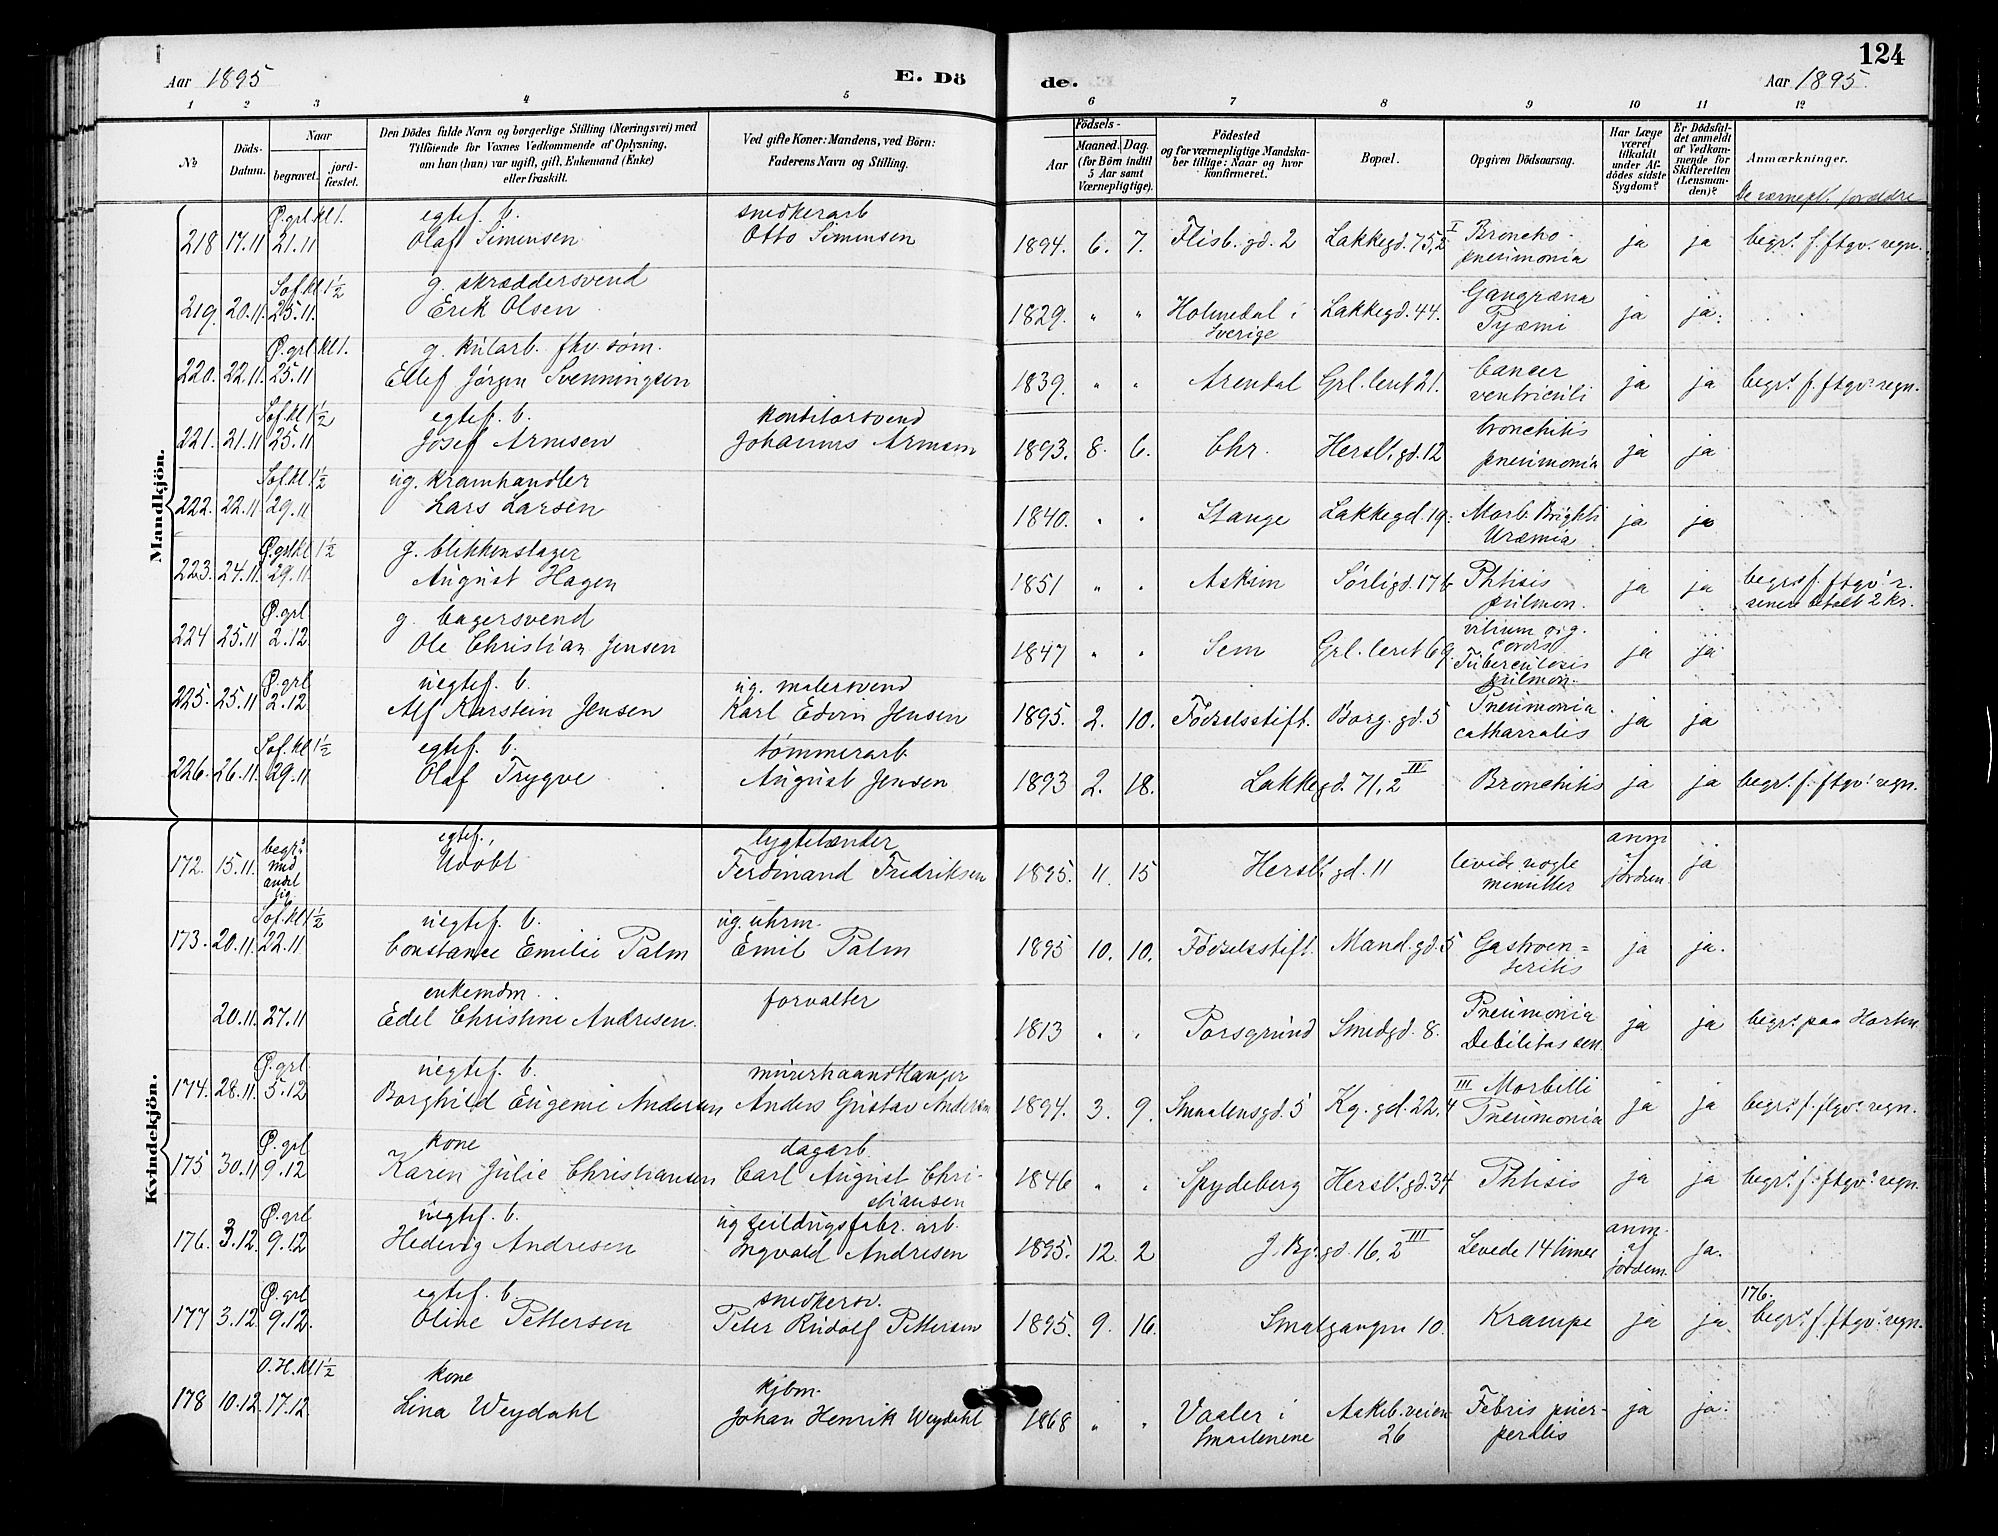 124
Aar 1895
E. Dö
de.
Aar 1895.
1 2 3 4 5 6 7 8 9 10 11 12
No
Döds-Datum.
Naar
begravet.
jord-fæstet.
Den Dödes fulde Navn og borgerlige Stilling (Næringsvei) med
Tilföiende for Voxnes Vedkommende af Oplysning,
om han (hun) var ugift, gift, Enkemand (Enke)
eller fraskilt.
Ved gifte Koner: Mandens, ved Börn:
Faderens Navn og Stilling.
Födsels-
Aar
Maaned. Dag.
(for Börn indtil
5 Aar samt
Værnepligtige).
Födested
og for værnepligtige Mandska-
ber tillige: Naar og hvor
konfirmeret.
Bopæl.
Opgiven Dödsaarsag.
Har Læge
været
tilkaldt
under Af-
dödes sidste
Sygdom?
Er Dödsfal-
det anmeldt
af Vedkom-
mende for
Skifteretten
(Lensman-
den)?
Anmærkninger.
De værnepl. forældre
Mandkjön.
Ø. grl kl 1. egtef. b. snedkerarb
218 17.11 21.11 Olaf Simensen Otto Simensen 1894. 6. 7. Flisb. gd. 2 Lakkegd. 75,2 I Broncho-pneumonia ja ja begr. f. ftgv. regn.
Sof. kl 1½ g. skræddersvend
219. 20.11. 25.11. Erik Olsen 1829. " " Holmedal i Sverige Lakkegd. 44. Gangræna Pyæmi ja ja.
Ø. grl kl 1. g. kularb. fhv. søm.
220. 22.11. 25.11 Ellef Jörgen Svenningsen 1839. " " Arendal Grl. leret 21. Cancer ventriculi ja ja begr. f. ftgv. regn.
Sof. kl 1½ egtef. b. konditorsvend
221. 21.11 25.11 Josef Arnesen Johannes Arnesen 1893. 8. 6. Chr. Hersl. gd. 12 bronchitis pneumonia ja ja
Sof. kl 1½ ug. kramhandler
222. 22.11 29.11 Lars Larsen 1840. " " Stange Lakkegd. 19. Morb. Brighti Uræmia ja ja
Ø. grl kl 1½ g. blikkenslager
223. 24.11. 29.11. August Hagen 1851 " " Askim Sörligd. 17b Phtisis pulmon. ja ja begr. f. ftgv. r. senere betalt 2 kr.
Ø. grl g. bagersvend
224 25.11 2.12 Ole Christian Jensen 1847 " " Sem Grl. leret 69. vitium org. cordis Tuberculosis pulmon. ja ja
Ø. grl uegtef. b. ug. malersvend
225. 25.11 2.12 Alf Karstein Jensen Karl Edvin Jensen 1895. 2. 10. Födselsstift. Borg. gd. 5 Pneumonia catharralis ja ja
Sof. kl 1½ egtef. b. tømmerarb.
226. 26.11. 29.11 Olaf Trygve August Jensen 1893 2. 18. Lakkegd. 71, 2 III Bronchitis ja ja begr. f. ftgv. regn.
Kvindekjön.
egtef. lygtetænder
172. 15.11. begr. Udöbt Ferdinand Fredriksen 1895. 11. 15 Hersl. gd. 11 levede nogle minutter anm. af jordem. ja
Sof. kl 1½ uegtef. b. ug. uhrm.
173. 20.11. 22.11 Constance Emilie Palm Emil Palm 1895 10. 10. Födselsstift. Mand. gd. 5 Gastroen=teritis ja ja.
enkemdm. forvalter
20.11. 27.11 Edel Christine Andresen. 1813 " " Porsgrund Smedgd. 8. Pneumonia Debilitas sen. ja ja begr. paa Horten
Ø. grl. uegtef. b. murerhaandlanger
174. 28.11. 5.12 Borghild Eugenie Andersen Anders Gustav Andersen 1894. 3. 9. Smaalensgd. 5 Kg. gd. 22,4 III Morbilli Pneumonia ja ja begr. f. ftgv. regn.
Ø. grl kone dagarb.
175 30.11 9.12 Karen Julie Christiansen Carl August Chri-stiansen 1846 " " Spydeberg Hersl. gd. 34 Phtisis ja ja begr. f. ftgv. regn.
Ø. grl uegtef. b. ug seildugsfabr. arb.
176. 3.12. 9.12 Hedvig Andresen Ingvald Andresen 1895. 12. 2 J. Bj. gd. 16, 2 III Levede 14 timer anm. af jordem. ja.
Ø. grl egtef. b. snedkersv. 176.
177 3.12. 9.12. Oline Pettersen Peter Rudolf Pettersen 1895. 9. 16. Smalgangen 10. Krampe ja ja. begr. f. ftgv. regn.
O. H. kl 1½ kone kjbm.
178 10.12. 17.12. Lina Weydahl Johan Henrik Weydahl 1868 " " Vaaler i Smaalenene Aakeb. veien 26 Febris puer-peralis ja ja.